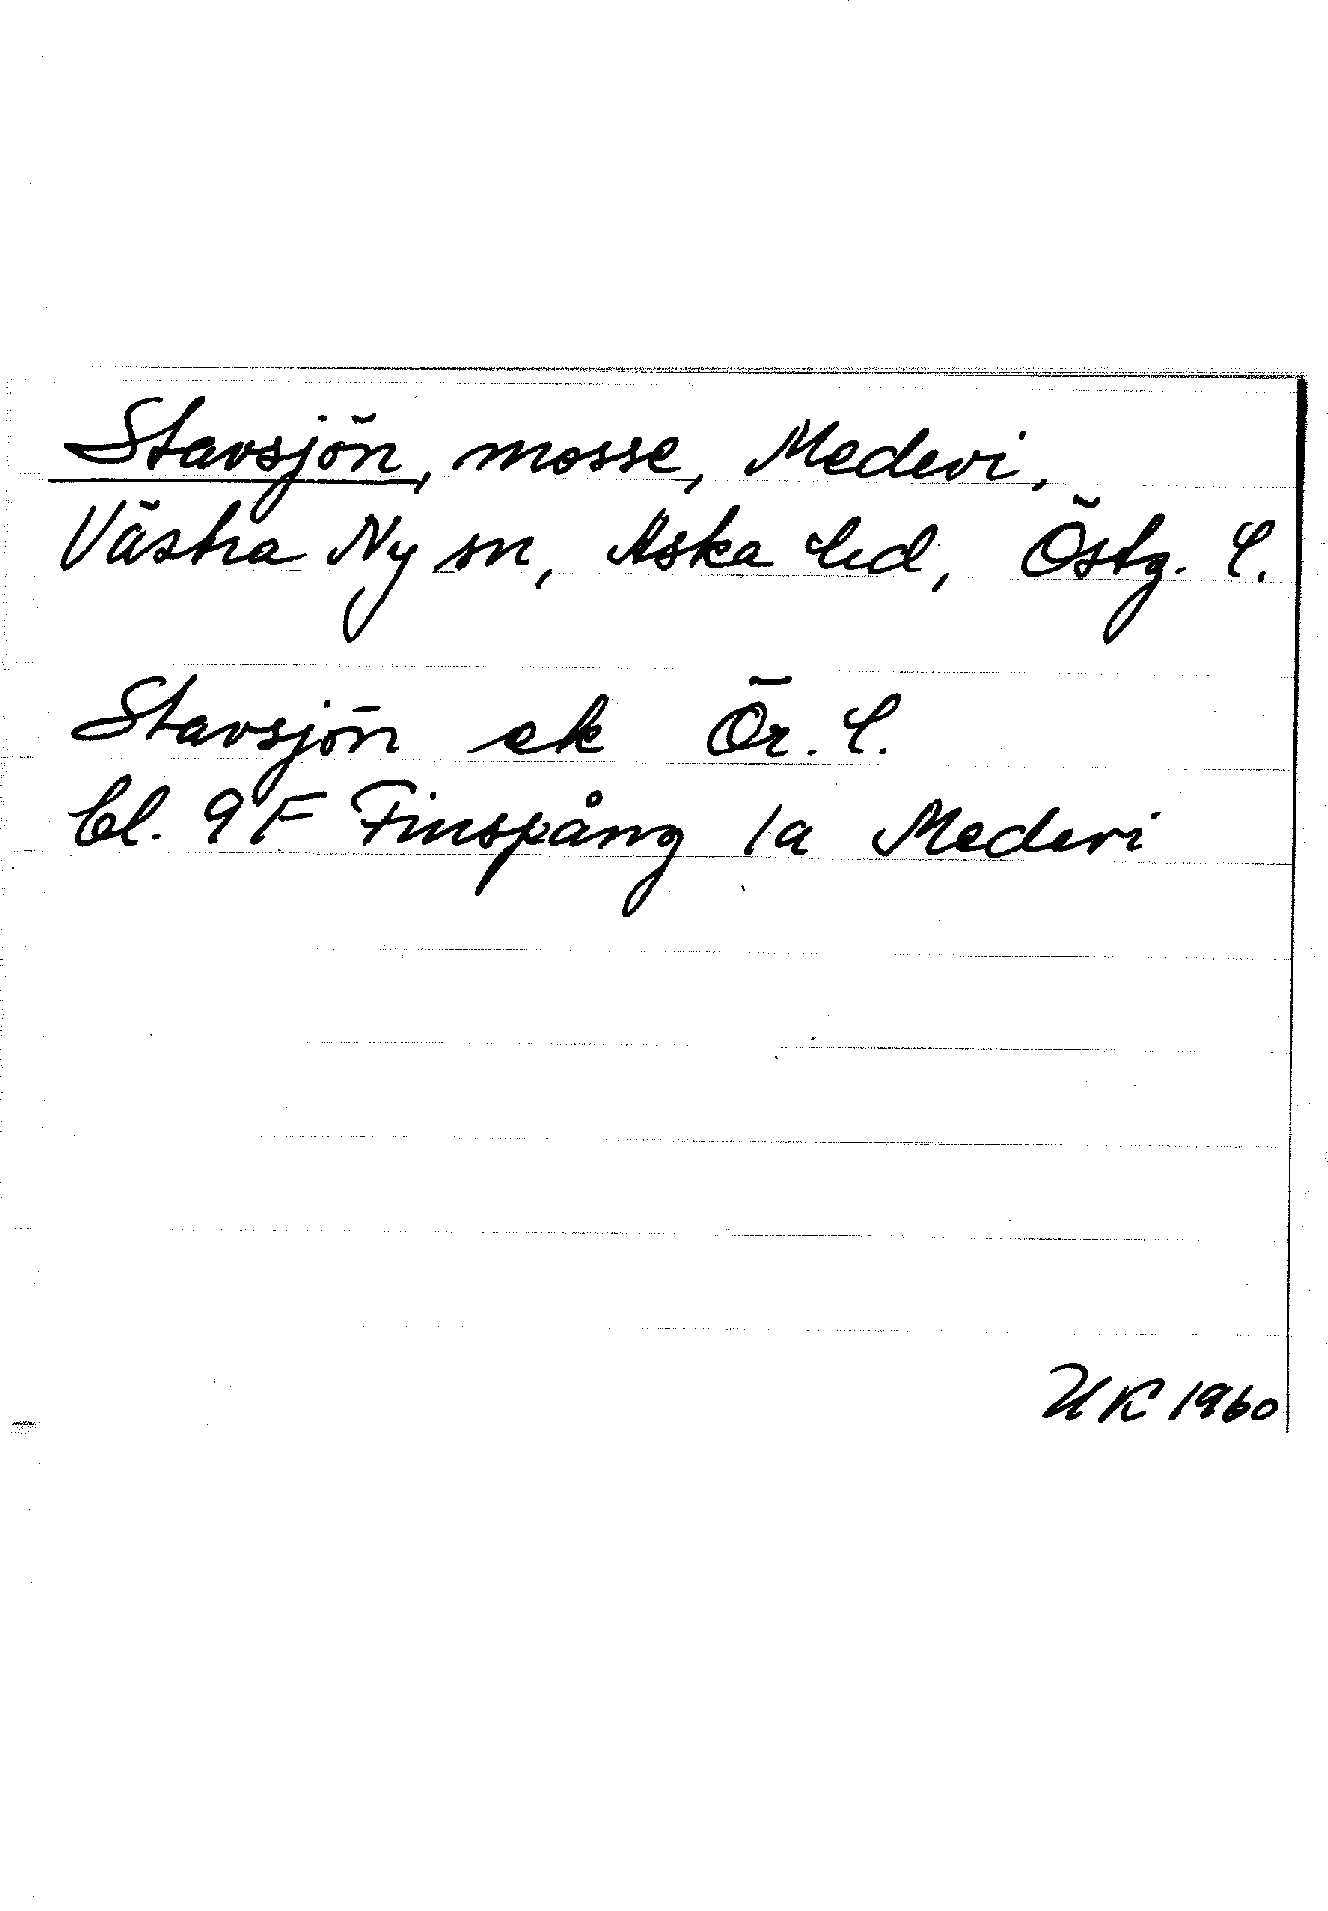 Stavsjön, mosse, Medevi,
Västra Ny sn, Aska hd, Östg. l.
Stavsjön ek Ör. l.
bl. 9F Finspång 1a Medevi
HK 1960